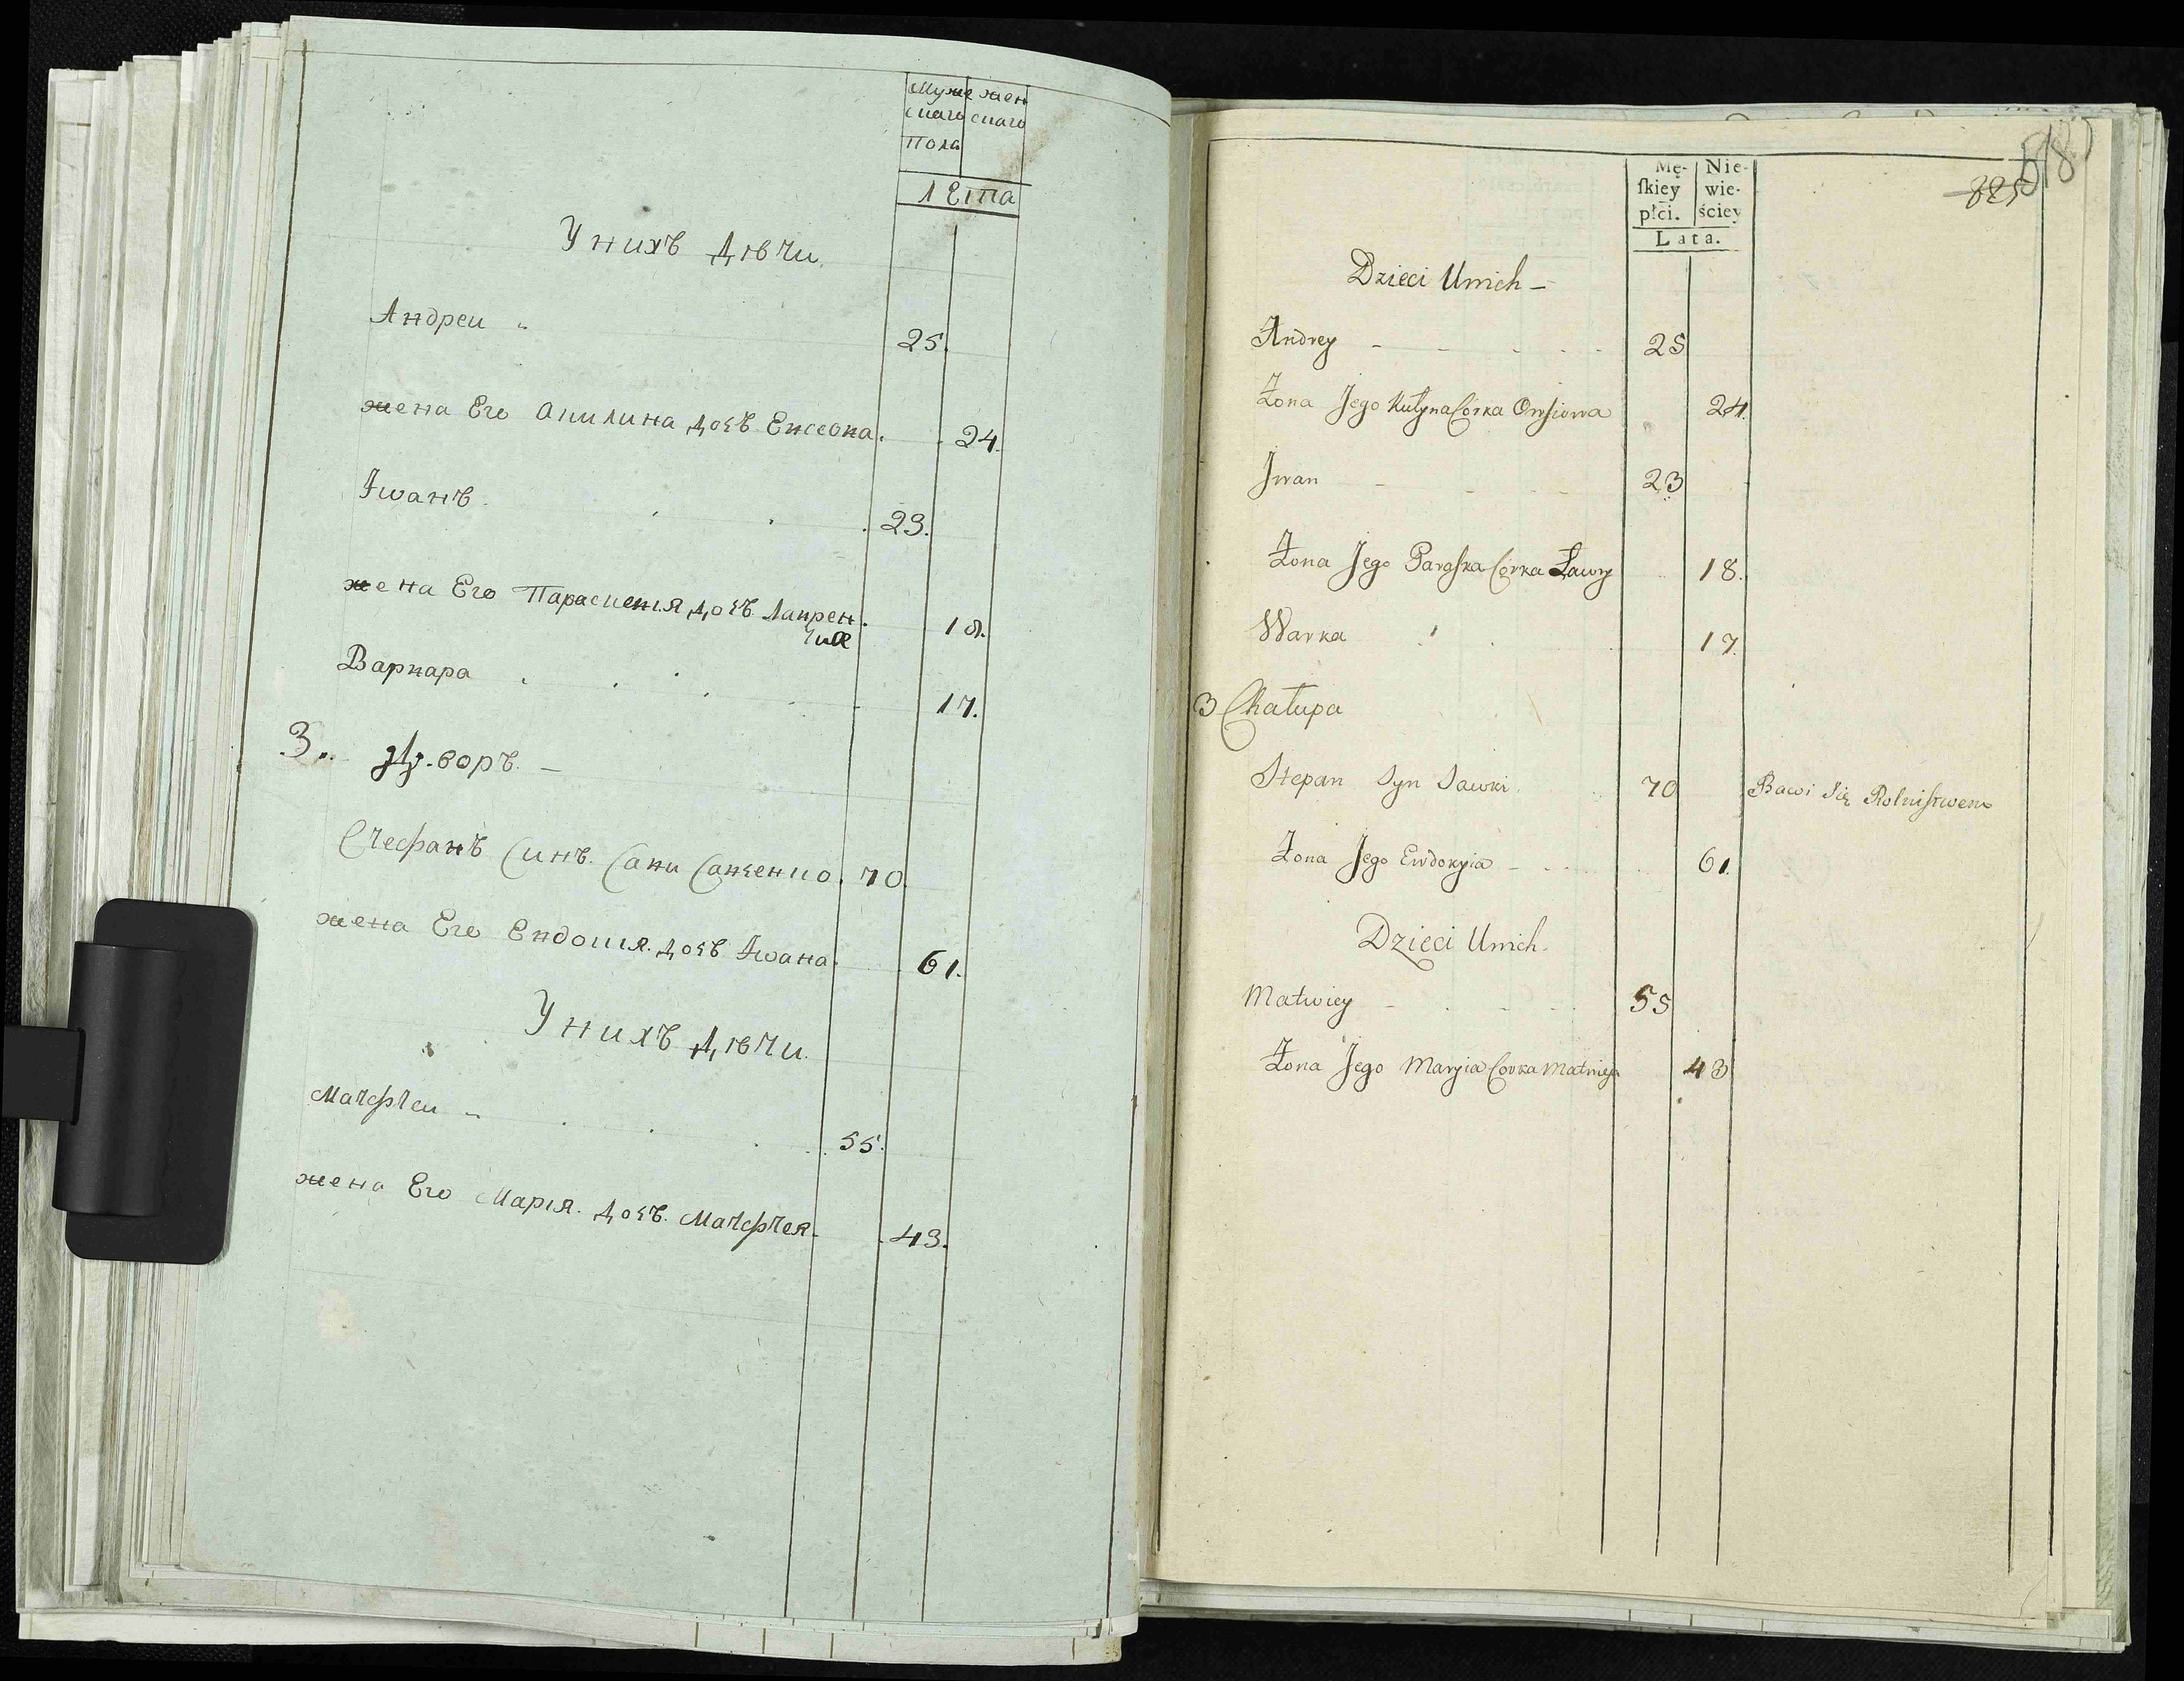 Муже жен
скаго скаго
пола
лета
У нихъ дѣти
Андреи 25.
жена Его Акилина дочъ Евсеова. 24.
Iванъ 23.
жена Его Параскевiя дочъ Лаврен
тия 18.
Варвара 17.
3. дворъ. —
Стефанъ Синъ Сави Савченко. 70.
жена Его Евдокия дочъ Iвана. 61.
У нихъ дѣти.
Матфеи 55.
жена Его Марiя. дочъ. Матфея. 43.
885
Mę- Nie-
ſkiey wie-
płci. ściey
Lata.
Dzieci Unich —
Andrey 25
Żona Jego Kulyna Córka Owsiowa 24.
Jwan 23
Żona Jego Paraſka Córka Ławry 18.
Warka 17.
3 Chałupa
Stepan Syn Sawki 70 Bawi Się Rolniſtwem
Żona Jego Ewdokyia 61.
Dzieci Unich.
Matwiey 55
Żona Jego Maryia Corka Matwieja 43